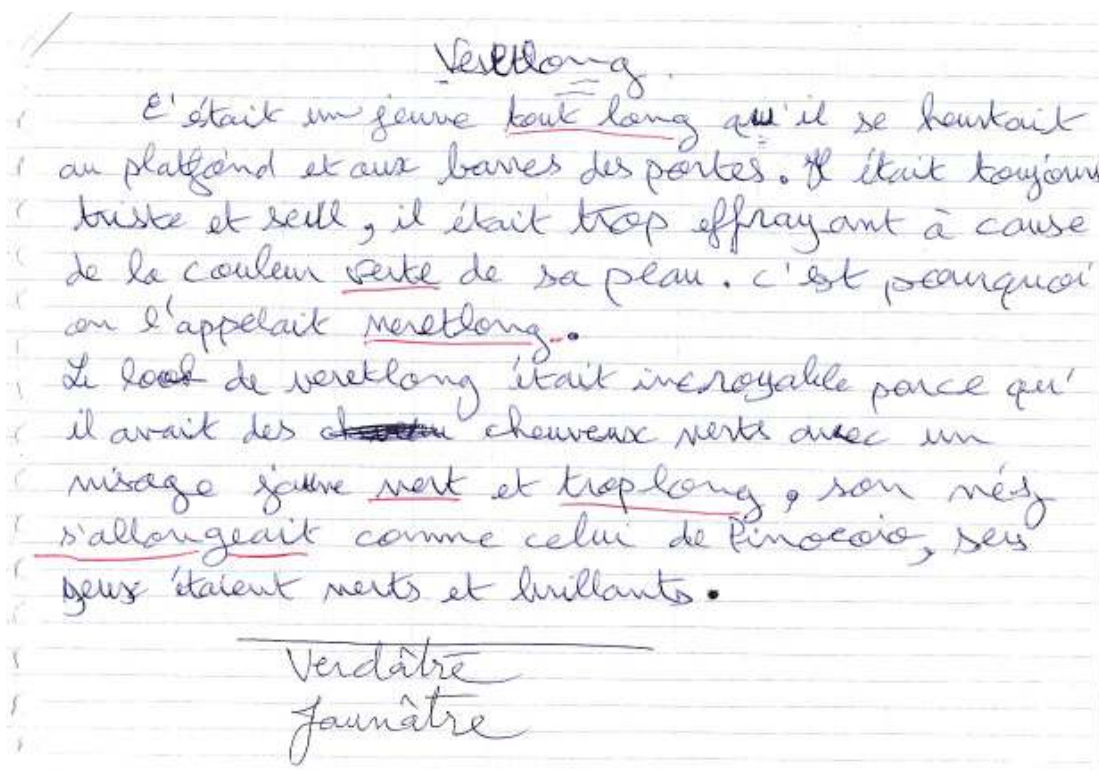 Veretlong
C'était un jeune tout long qu'il se heurtait
au platfond et aux barres des portes. Il était toujours
triste et seul, il était trop effrayant à cause
de la couleur verte de sa peau. c'est pourquoi
on l'appelait veretlong.
Le look de veretlong était incroyable parce qu'
il avait des cheuveux verts avec un
visage jaune vert et trop long, son néz
s'allongeait comme celui de Pinocoio, ses
yeux étaient verts et brillants.
Verdâtre
Jaunâtre